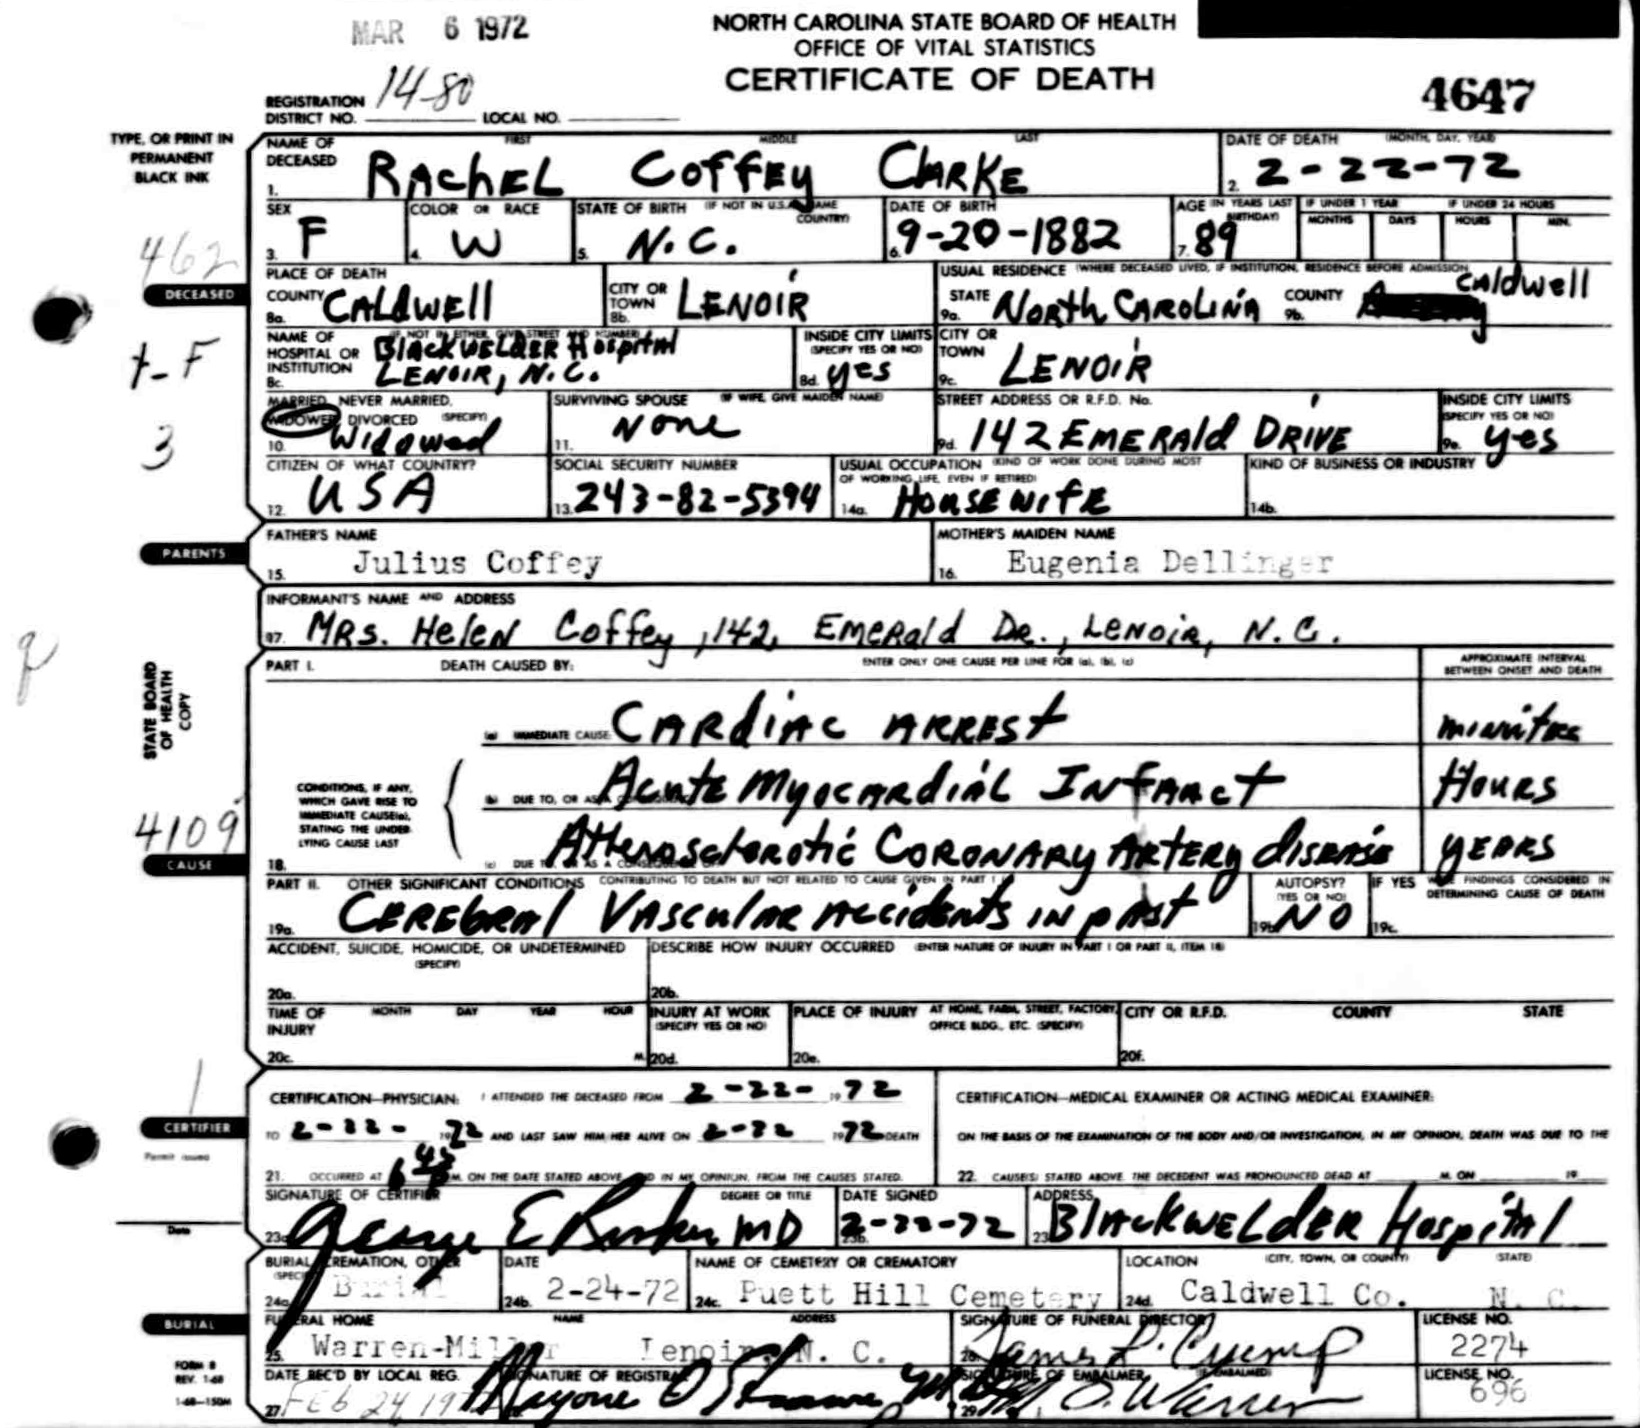 MAR 6 1972
NORTH CAROLINA STATE BOARD OF HEALTH
OFFICE OF VITAL STATISTICS
CERTIFICATE OF DEATH
4647
REGISTRATION DISTRICT NO. 14-80 LOCAL NO.
TYPE, OR PRINT IN PERMANENT BLACK INK
NAME OF DECEASED FIRST MIDDLE LAST
1. RACHEL COFFEY CLARKE
DATE OF DEATH (MONTH, DAY, YEAR)
2. 2-22-72
SEX 3. F
COLOR OR RACE 4. W
STATE OF BIRTH (IF NOT IN U.S.A. NAME COUNTRY) 5. N.C.
DATE OF BIRTH 6. 9-20-1882
AGE (IN YEARS LAST BIRTHDAY) 7. 89
IF UNDER 1 YEAR MONTHS DAYS
IF UNDER 24 HOURS HOURS MIN.
462
DECEASED
PLACE OF DEATH
COUNTY 8a. CALDWELL
CITY OR TOWN 8b. LENOIR
USUAL RESIDENCE (WHERE DECEASED LIVED, IF INSTITUTION, RESIDENCE BEFORE ADMISSION)
STATE 9a. North CAROLINA
COUNTY 9b. Caldwell
NAME OF HOSPITAL OR INSTITUTION (IF NOT IN EITHER, GIVE STREET AND NUMBER)
8c. BlACKWELDER Hospital
LENOIR, N.C.
INSIDE CITY LIMITS (SPECIFY YES OR NO) 8d. yes
CITY OR TOWN 9c. LENOIR
t-F
MARRIED, NEVER MARRIED, WIDOWED, DIVORCED (SPECIFY)
10. Widowed
SURVIVING SPOUSE (IF WIFE, GIVE MAIDEN NAME)
11. None
STREET ADDRESS OR R.F.D. No.
9d. 142 EMERAld DRIVE
INSIDE CITY LIMITS (SPECIFY YES OR NO) 9e. yes
3
CITIZEN OF WHAT COUNTRY?
12. USA
SOCIAL SECURITY NUMBER
13. 243-82-5394
USUAL OCCUPATION (KIND OF WORK DONE DURING MOST OF WORKING LIFE, EVEN IF RETIRED)
14a. HOUSEWIFE
KIND OF BUSINESS OR INDUSTRY
14b.
PARENTS
FATHER'S NAME
15. Julius Coffey
MOTHER'S MAIDEN NAME
16. Eugenia Dellinger
INFORMANT'S NAME AND ADDRESS
17. MRS. Helen Coffey, 142, Emerald DR., LENOIR, N.C.
STATE BOARD OF HEALTH COPY
PART I. DEATH CAUSED BY: ENTER ONLY ONE CAUSE PER LINE FOR (a), (b), (c)
APPROXIMATE INTERVAL BETWEEN ONSET AND DEATH
(a) IMMEDIATE CAUSE: CARDIAC ARREST minutes
CONDITIONS, IF ANY, WHICH GAVE RISE TO IMMEDIATE CAUSE(a), STATING THE UNDERLYING CAUSE LAST
(b) DUE TO, OR AS A CONSEQUENCE OF: Acute Myocardial Infarct Hours
4109
CAUSE
18. (c) DUE TO, OR AS A CONSEQUENCE OF: Atherosclerotic CORONARY ARTERY disease years
PART II. OTHER SIGNIFICANT CONDITIONS CONTRIBUTING TO DEATH BUT NOT RELATED TO CAUSE GIVEN IN PART I (a)
19a. CEREBRAl VASCulAR Accidents in past
AUTOPSY? (YES OR NO) 19b. NO
IF YES WERE FINDINGS CONSIDERED IN DETERMINING CAUSE OF DEATH
19c.
ACCIDENT, SUICIDE, HOMICIDE, OR UNDETERMINED (SPECIFY)
20a.
DESCRIBE HOW INJURY OCCURRED (ENTER NATURE OF INJURY IN PART I OR PART II, ITEM 18)
20b.
TIME OF INJURY MONTH DAY YEAR HOUR
20c. M.
INJURY AT WORK (SPECIFY YES OR NO)
20d.
PLACE OF INJURY AT HOME, FARM, STREET, FACTORY, OFFICE BLDG., ETC. (SPECIFY)
20e.
CITY OR R.F.D. COUNTY STATE
20f.
CERTIFIER
Permit issued
Date
CERTIFICATION—PHYSICIAN: I ATTENDED THE DECEASED FROM 2-22- 19 72
TO 2-22- 19 72 AND LAST SAW HIM/HER ALIVE ON 2-22 19 72 DEATH
21. OCCURRED AT 6 45 M. ON THE DATE STATED ABOVE, AND IN MY OPINION, FROM THE CAUSES STATED.
CERTIFICATION—MEDICAL EXAMINER OR ACTING MEDICAL EXAMINER:
ON THE BASIS OF THE EXAMINATION OF THE BODY AND/OR INVESTIGATION, IN MY OPINION, DEATH WAS DUE TO THE
22. CAUSE(S) STATED ABOVE. THE DECEDENT WAS PRONOUNCED DEAD AT M. ON 19
SIGNATURE OF CERTIFIER DEGREE OR TITLE
23a. George E MD
DATE SIGNED
23b. 2-22-72
ADDRESS
23 BlACKWELDER Hospital
BURIAL, CREMATION, OTHER (SPECIFY)
24a. Burial
DATE
24b. 2-24-72
NAME OF CEMETERY OR CREMATORY
24c. Puett Hill Cemetery
LOCATION (CITY, TOWN, OR COUNTY) (STATE)
24d. Caldwell Co. N. C.
BURIAL
FUNERAL HOME NAME ADDRESS
25. Warren-Miller Lenoir, N. C.
SIGNATURE OF FUNERAL DIRECTOR
26. James L. Crump
LICENSE NO.
2274
FORM 8
REV. 1-68
1-68—150M
DATE REC'D BY LOCAL REG.
27. FEB 24 197
SIGNATURE OF REGISTRAR
SIGNATURE OF EMBALMER (IF EMBALMED)
29. O. Warren
LICENSE NO.
696